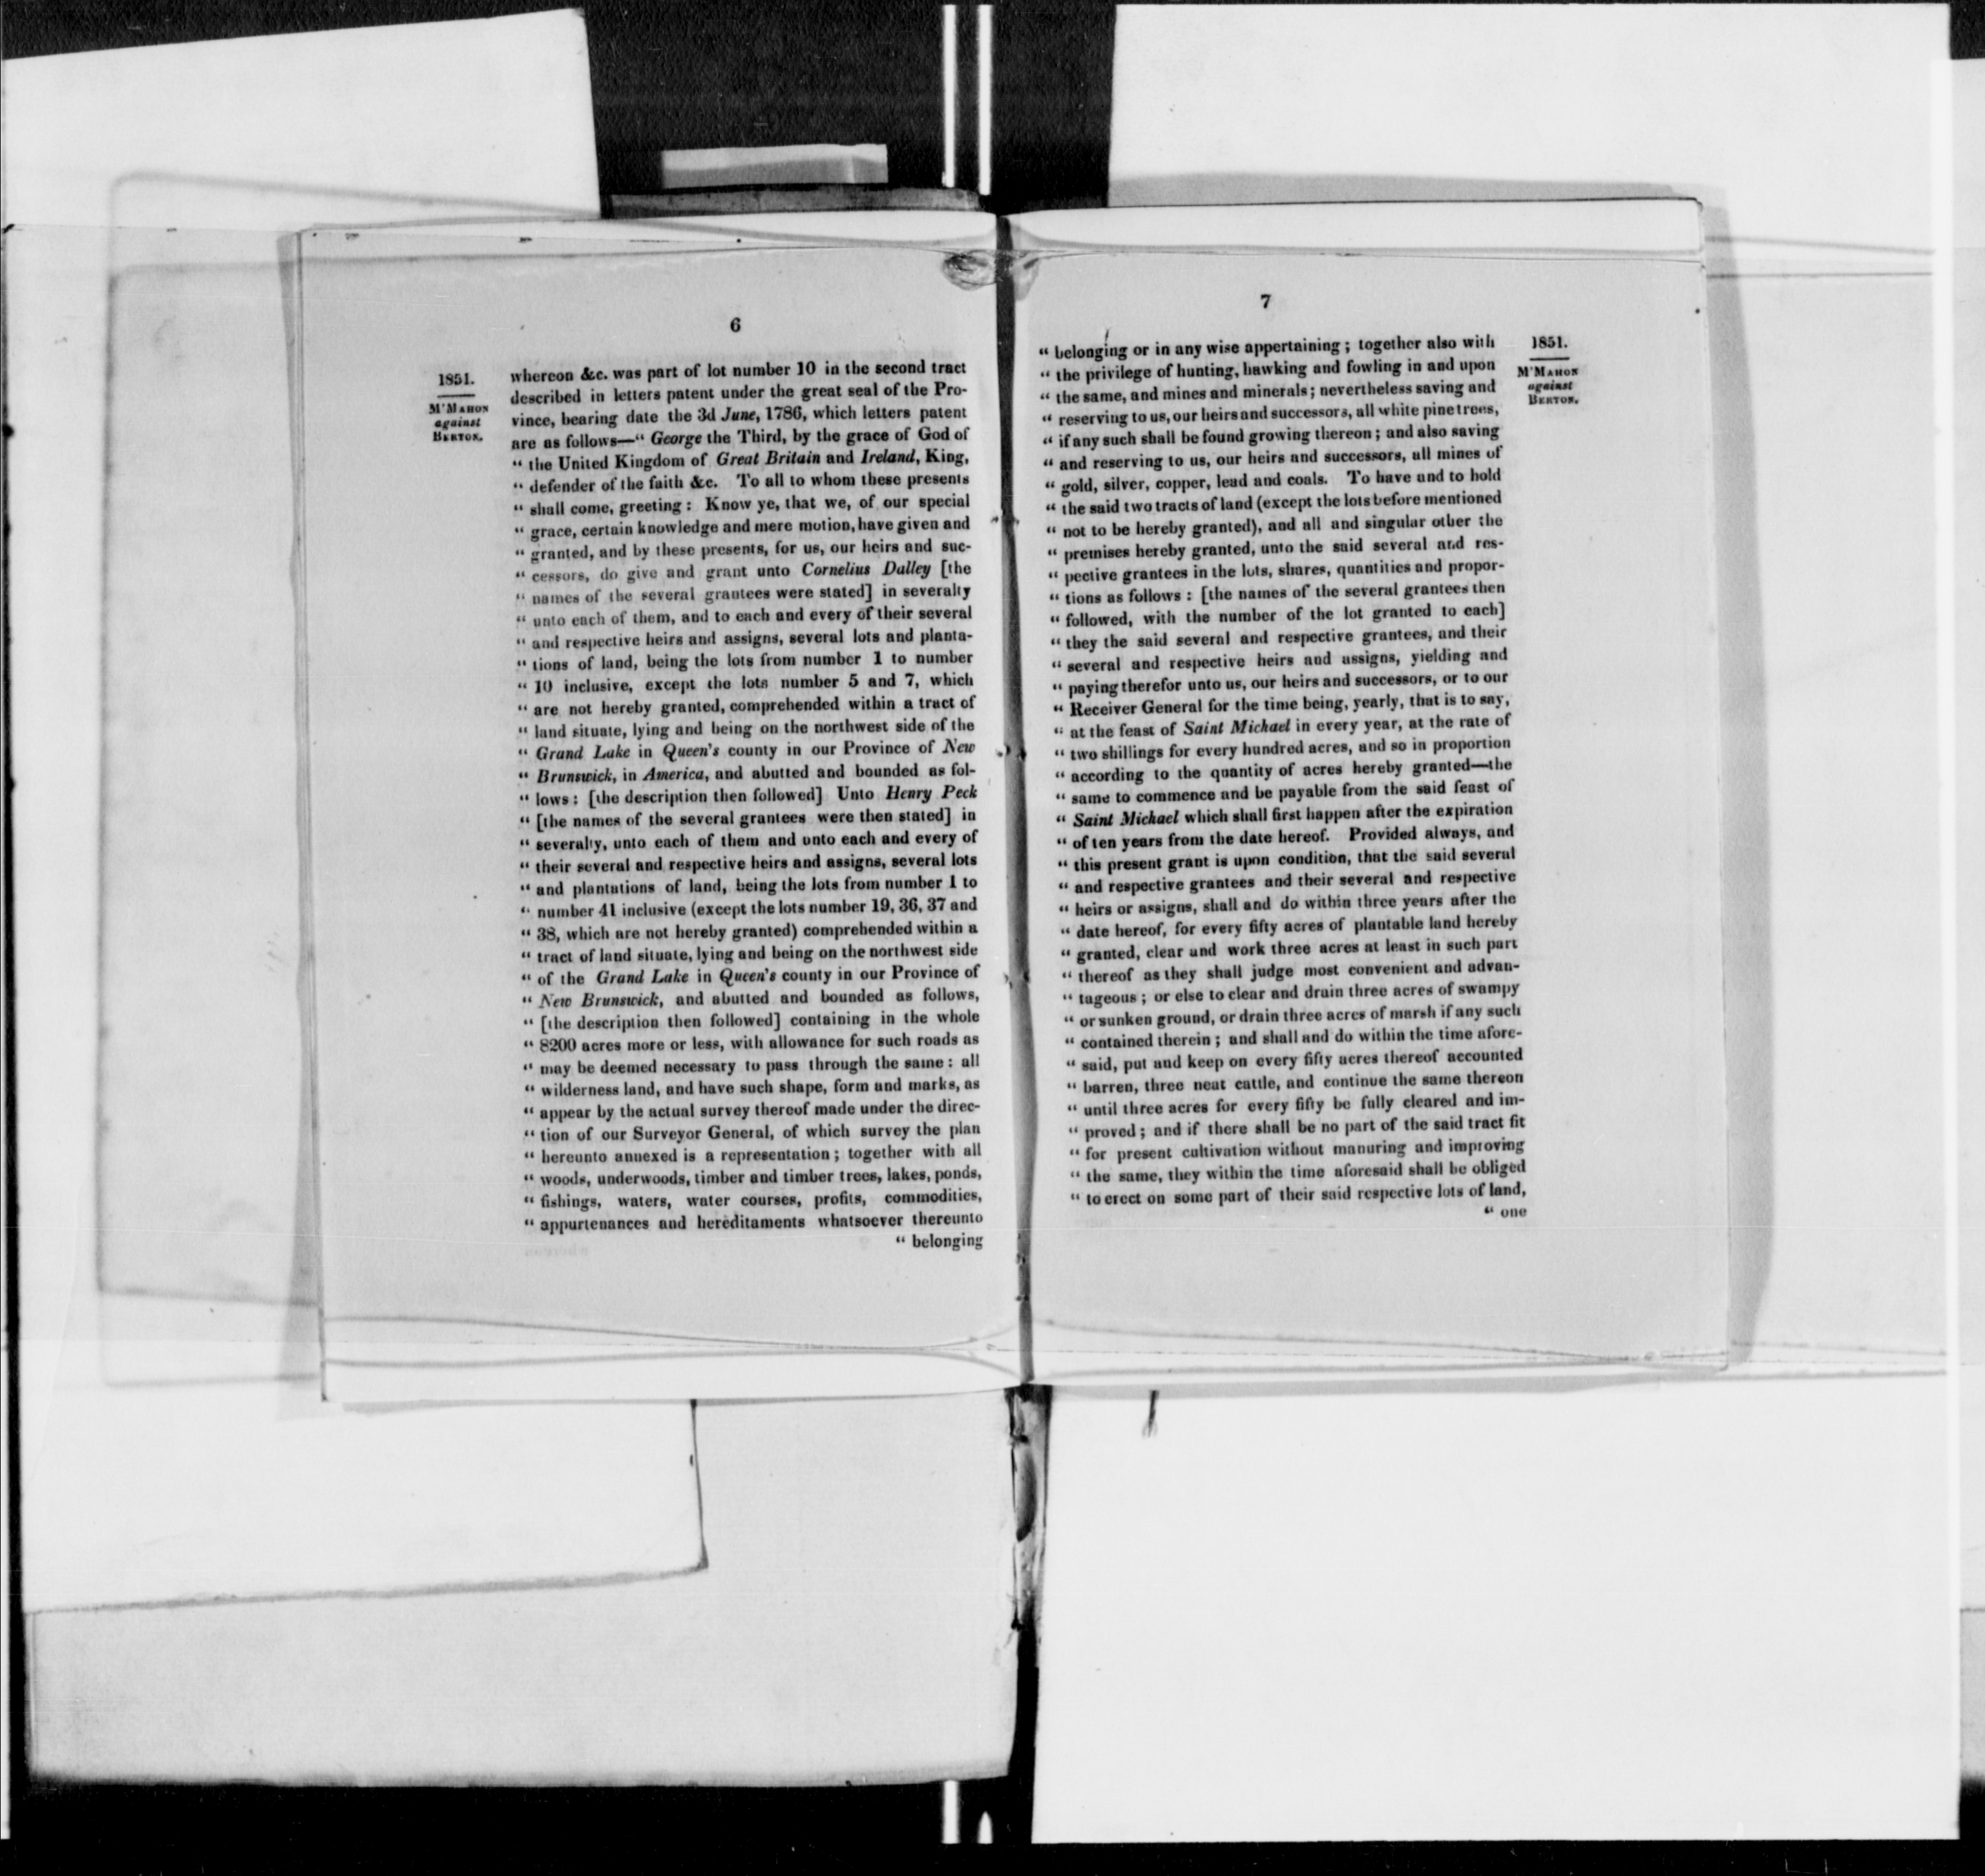 6
1851.
M'MAHON
against
BERTON.
whereon &c. was part of lot number 10 in the second tract
described in letters patent under the great seal of the Pro-
vince, bearing date the 3d June, 1786, which letters patent
are as follows—“ George the Third, by the grace of God of
“ the United Kingdom of Great Britain and Ireland, King,
“ defender of the faith &c. To all to whom these presents
“ shall come, greeting : Know ye, that we, of our special
“ grace, certain knowledge and mere motion, have given and
“ granted, and by these presents, for us, our heirs and suc-
“ cessors, do give and grant unto Cornelius Dalley [the
“ names of the several grantees were stated] in severalty
“ unto each of them, and to each and every of their several
“ and respective heirs and assigns, several lots and planta-
“ tions of land, being the lots from number 1 to number
“ 10 inclusive, except the lots number 5 and 7, which
“ are not hereby granted, comprehended within a tract of
“ land situate, lying and being on the northwest side of the
“ Grand Lake in Queen's county in our Province of New
“ Brunswick, in America, and abutted and bounded as fol-
“ lows : [the description then followed] Unto Henry Peck
“ [the names of the several grantees were then stated] in
“ severalty, unto each of them and unto each and every of
“ their several and respective heirs and assigns, several lots
“ and plantations of land, being the lots from number 1 to
“ number 41 inclusive (except the lots number 19, 36, 37 and
“ 38, which are not hereby granted) comprehended within a
“ tract of land situate, lying and being on the northwest side
“ of the Grand Lake in Queen's county in our Province of
“ New Brunswick, and abutted and bounded as follows,
“ [the description then followed] containing in the whole
“ 8200 acres more or less, with allowance for such roads as
“ may be deemed necessary to pass through the same : all
“ wilderness land, and have such shape, form and marks, as
“ appear by the actual survey thereof made under the direc-
“ tion of our Surveyor General, of which survey the plan
“ hereunto annexed is a representation ; together with all
“ woods, underwoods, timber and timber trees, lakes, ponds,
“ fishings, waters, water courses, profits, commodities,
“ appurtenances and hereditaments whatsoever thereunto
“ belonging
7
1851.
M'MAHON
against
BERTON.
“ belonging or in any wise appertaining ; together also with
“ the privilege of hunting, hawking and fowling in and upon
“ the same, and mines and minerals ; nevertheless saving and
“ reserving to us, our heirs and successors, all white pine trees,
“ if any such shall be found growing thereon ; and also saving
“ and reserving to us, our heirs and successors, all mines of
“ gold, silver, copper, lead and coals. To have and to hold
“ the said two tracts of land (except the lots before mentioned
“ not to be hereby granted), and all and singular other the
“ premises hereby granted, unto the said several and res-
“ pective grantees in the lots, shares, quantities and propor-
“ tions as follows : [the names of the several grantees then
“ followed, with the number of the lot granted to each]
“ they the said several and respective grantees, and their
“ several and respective heirs and assigns, yielding and
“ paying therefor unto us, our heirs and successors, or to our
“ Receiver General for the time being, yearly, that is to say,
“ at the feast of Saint Michael in every year, at the rate of
“ two shillings for every hundred acres, and so in proportion
“ according to the quantity of acres hereby granted—the
“ same to commence and be payable from the said feast of
“ Saint Michael which shall first happen after the expiration
“ of ten years from the date hereof. Provided always, and
“ this present grant is upon condition, that the said several
“ and respective grantees and their several and respective
“ heirs or assigns, shall and do within three years after the
“ date hereof, for every fifty acres of plantable land hereby
“ granted, clear and work three acres at least in such part
“ thereof as they shall judge most convenient and advan-
“ tageous ; or else to clear and drain three acres of swampy
“ or sunken ground, or drain three acres of marsh if any such
“ contained therein ; and shall and do within the time afore-
“ said, put and keep on every fifty acres thereof accounted
“ barren, three neat cattle, and continue the same thereon
“ until three acres for every fifty be fully cleared and im-
“ proved ; and if there shall be no part of the said tract fit
“ for present cultivation without manuring and improving
“ the same, they within the time aforesaid shall be obliged
“ to erect on some part of their said respective lots of land,
“ one